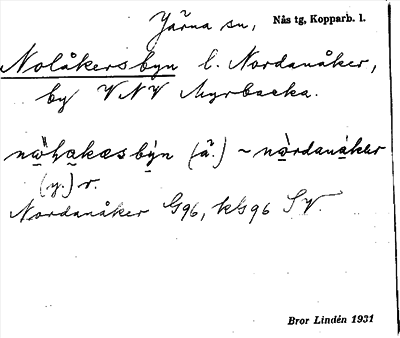 Järna sn, Nås tg, Kopparb. l.
Nolåkersbyn l. Nordanåker,
by VNV Myrbacka.
(ä.) ~ nòrdanåker
(y.) r.
Nordanåker G96, kG96 SV.
Bror Lindén 1931